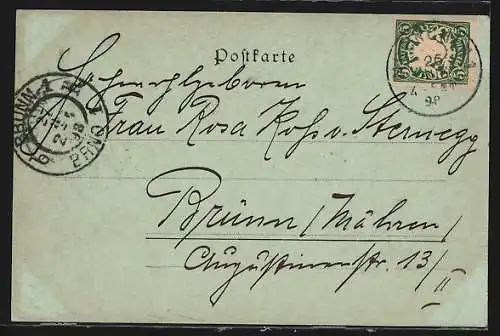 Postkarte
Hochwohlgeboren
Frau Rosa Koh v. Sternegg
Brünn/Mähren/
Augustinerstr. 13/II
BRÜNN
BRNO
98
25
4
98
5
5